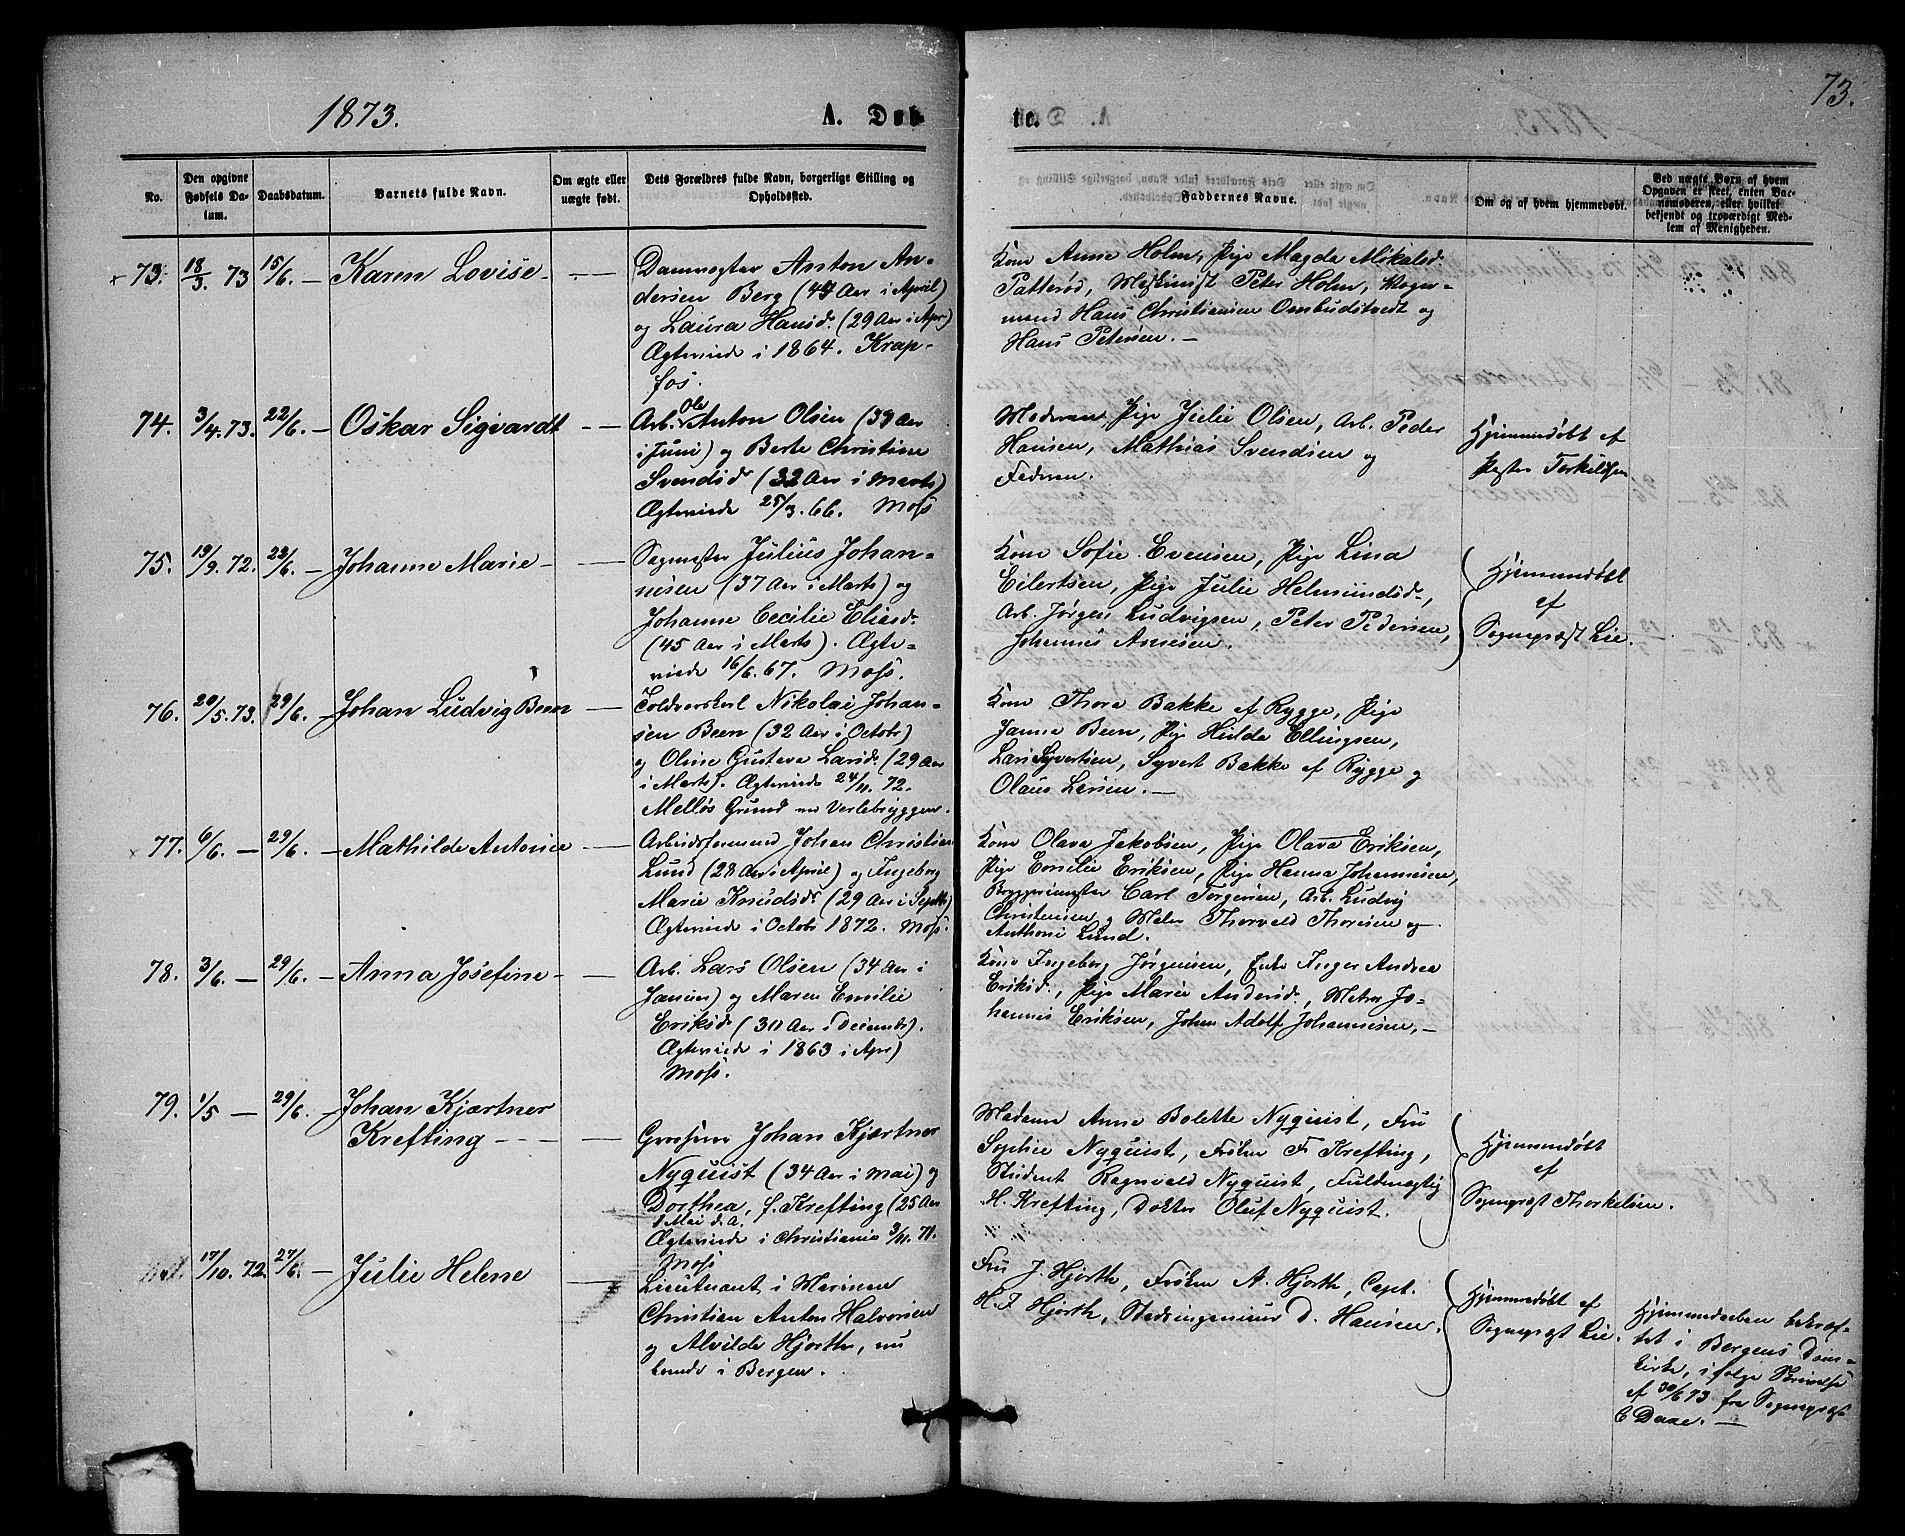 1873.
A. Døb
te.
73.
No.
Den opgivne Fødsels Da- tum.
Daabsdatum.
Barnets fulde Navn.
Om ægte eller uægte født.
Dets Forældres fulde Navn, borgerlige Stilling og Opholdssted.
Faddernes Navne.
Om og af hvem hjemmedøbt.
Ved uægte Børn af hvem Opgaven er skeet, enten Bar- nemoderen, eller hvilket bekjendt og troværdigt Med- lem af Menigheden.
73. 18/3. 73 15/6. — Karen Lovise — —
Damvogter Anton An-
dersen Berg (44 Aar i April)
og Laura Hansd. (29 Aar i Apr)
Ægteviede i 1864. Krap-
fos.
Kone Anne Holm, Pige Magda Mikalsd.
Patterød, Maskinist Peter Holm, Kjøp-
mand Hans Christiansen Ombudstvedt og
Hans Petersen. —
74. 3/4. 73. 22/6. — Oskar Sigvardt — —
Arb. Ole Anton Olsen (37 Aar
i Juni) og Berte Christine
Svendsd. (32 Aar i Marts)
Ægteviede 25/3. 66. Moss
Moderen, Pige Julie Olsen, Arb. Peder
Hansen, Mathias Svendsen og
Faderen.
Hjemmedøbt af
Pastor Torkildsen
75. 19/9. 72. 22/6. — Johanne Marie — —
Sagmester Julius Johan-
nesen (37 Aar i Marts) og
Johanne Cecilie Eliasd.
(45 Aar i Marts). Ægte-
viede 16/6. 67. Moss.
Kone Sofie Evensen, Pige Lina
Eilertsen, Pige Julie Helmundsd.,
Arb. Jørgen Ludvigsen, Peter Pedersen,
Johannes Arnesen.
Hjemmedøbt
af
Sognepræst Lie.
76. 20/5. 73. 29/6. — Johan Ludvig Been —
Toldvorskarl Nikolai Johan-
sen Been (32 Aar i Octobr)
og Oline Gustava Larsd. (29 Aar
i Marts). Ægteviede 24/11. 72.
Melløs Grund ved Værlebryggen.
Kone Thora Bakke af Rygge, Pige
Janna Been, Pige Hulda Ellingsen,
Lars Syvertsen, Syvert Bakke af Rygge og
Olaus Larsen. —
77. 6/6. — 29/6. — Mathilde Antonie —
Arbeidsformand Johan Christian
Lund (28 Aar i April) og Ingeborg
Marie Knudsd. (29 Aar i Septb)
Ægteviede i Octobr 1872. Moss.
Kone Olava Jakobsen, Pige Olava Eriksen,
Pige Emilie Eriksen, Pige Hanna Johannesen,
Byggmester Carl Torgersen, Arb. Ludvig
Christensen og Maler Thorvald Thoresen og
Anthoni Lund.
78. 3/6. — 29/6. — Anna Josefine — —
Arb. Lars Olsen (34 Aar i
Januar) og Maren Emilie
Eriksd. (30 Aar i Decembr).
Ægteviede i 1863 i Apr)
Moss.
Kone Ingeborg Jørgensen, Enke Inger Andrea
Eriksd., Pige Marie Andersd., Matros Jo-
hannes Eriksen, Johan Adolf Johannesen, —
79. 1/5 — 29/6. — Johan Kjærtner
Krefting — — —
Grosserer Johan Kjærtner
Nyquist (34 Aar i Mai) og
Dorthea, f. Krefting (25 Aar
i Mai d. A.
Ægteviede i Christiania 3/11. 71.
Moss
Madame Anne Bolette Nyquist, Fru
Sophie Nyquist, Frøken F. Krefting,
Student Ragnvald Nyquist, Fuldmægtig
H. Krefting, Doktor Oluf Nyquist.
Hjemmedøbt
af
Sognepræst Thorkelsen.
17/10. 72 27/6. — Julie Helene —
Lieutenant i Marinen
Christian Anton Halvorsen
og Alvilde Hjorth, nu
boende i Bergen.
Fru J. Hjorth, Frøken A. Hjorth, Capt.
H. F. Hjorth, Stadsingeniør D. Hansen.
Hjemmedøbt af
Sognepræst Lie.
Hjemmedaaben bekræf-
tet i Bergens Dom-
kirke, ifølge Skrivelse
af 30/6 73 fra Sognepræst
C Daae. —